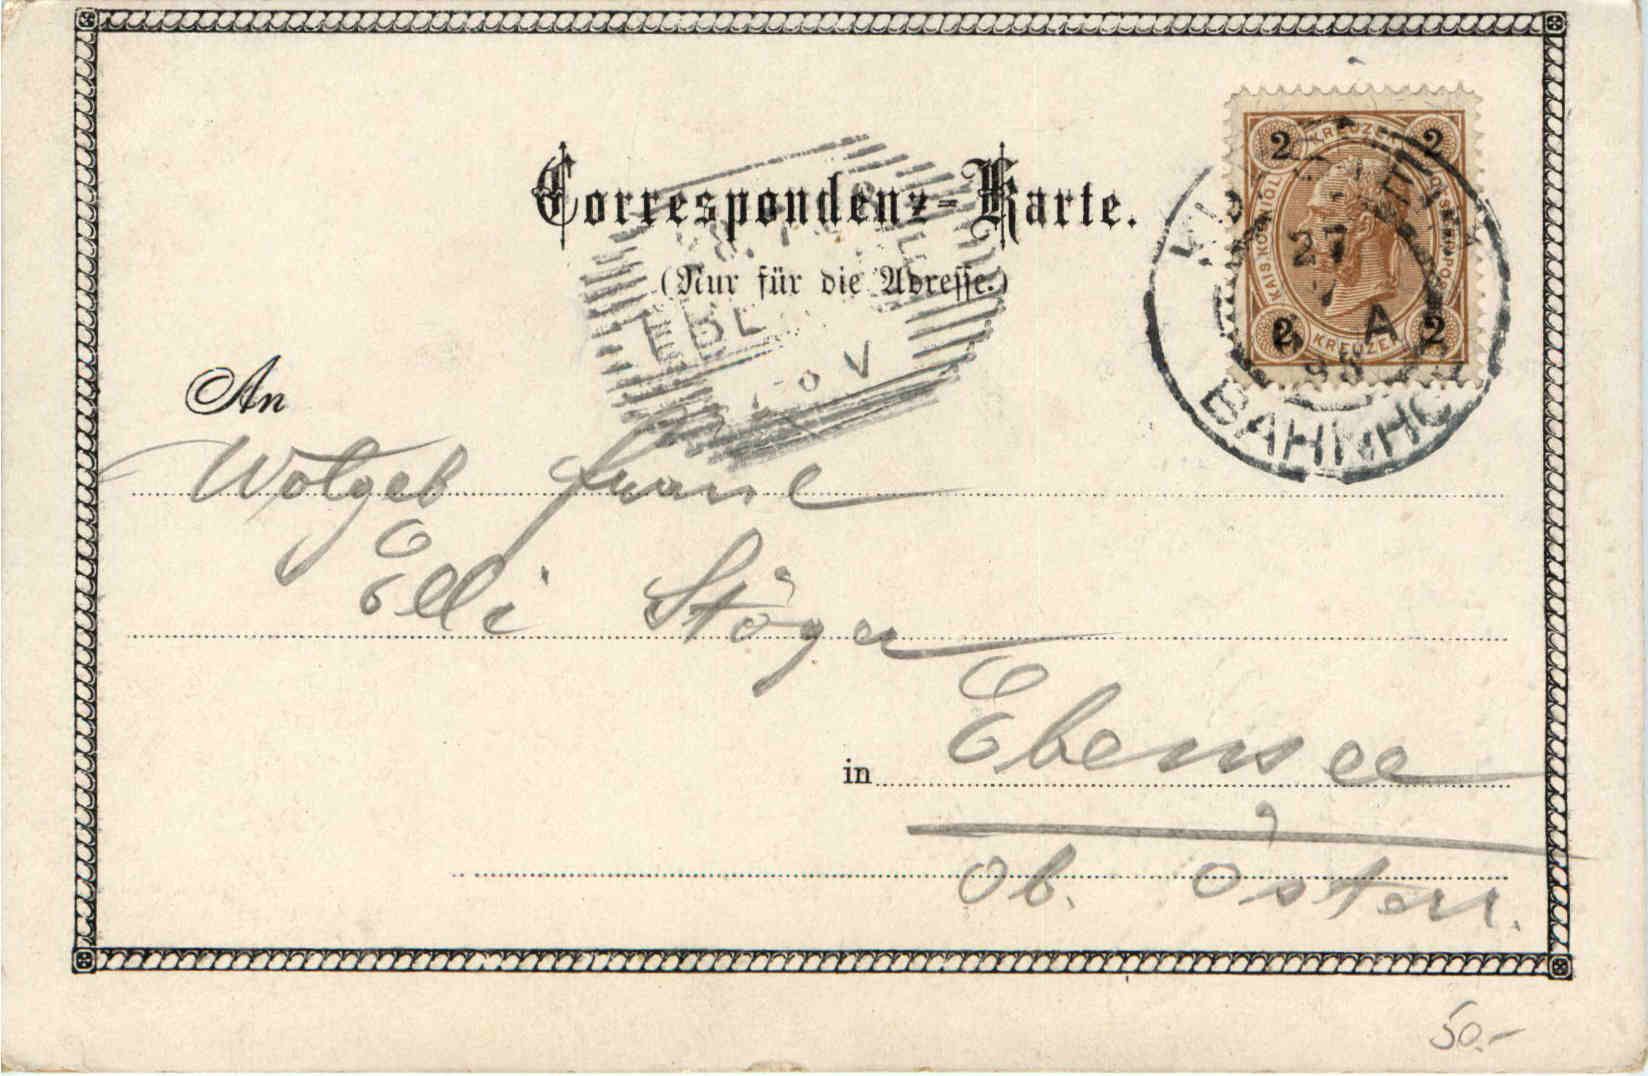 Correspondenz-Karte.
(Nur für die Adresse.)
2 KREUZER 2
KAIS. KÖNIGL.
2 KREUZER 2
27
A
98
BAHNHO
EBE
V
An
Wolgeb
Elli Stöger
in Ebensee
Ob. Österr.
50.-